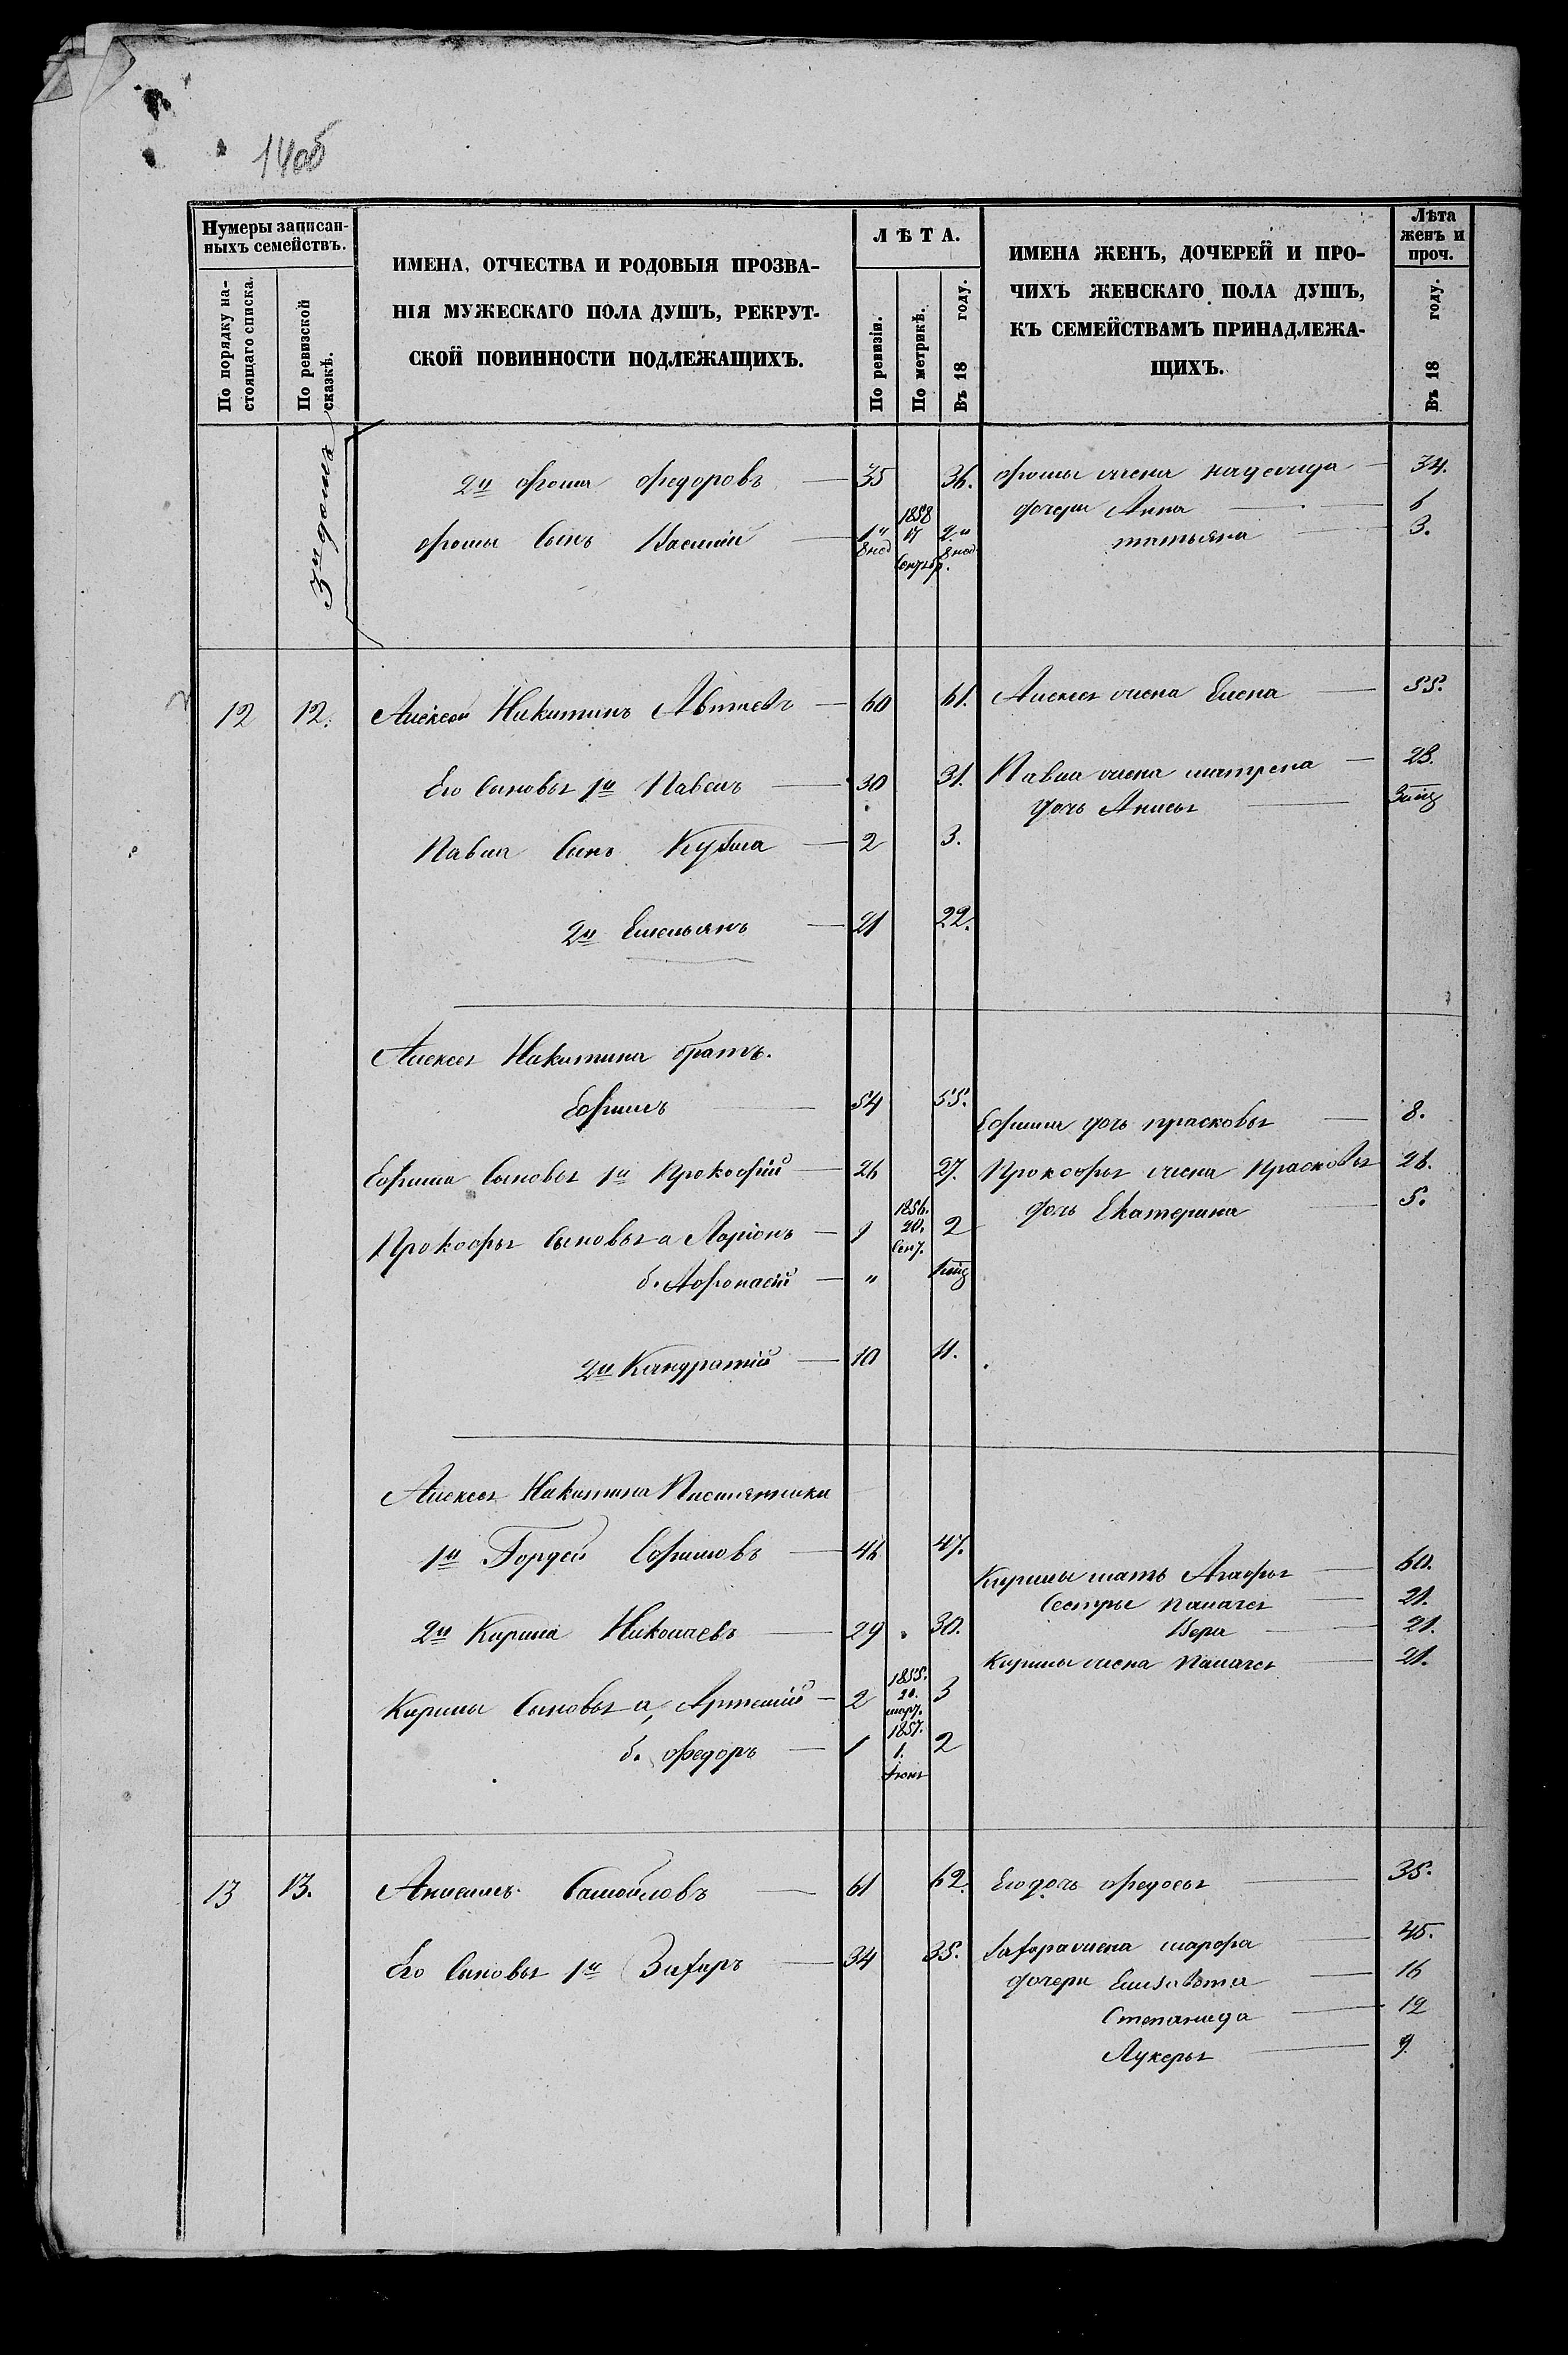 14об
Нумеры записан-
ныхъ семействъ.
По порядку на-
стоящаго списка.
По ревизской
сказкѣ.
ИМЕНА, ОТЧЕСТВА И РОДОВЫЯ ПРОЗВА-
НІЯ МУЖЕСКАГО ПОЛА ДУШЪ, РЕКРУТ-
СКОЙ ПОВИННОСТИ ПОДЛЕЖАЩИХЪ.
ЛѢТА.
По ревизіи.
По метрикѣ.
Въ 18 году.
ИМЕНА ЖЕНЪ, ДОЧЕРЕЙ И ПРО-
ЧИХЪ ЖЕНСКАГО ПОЛА ДУШЪ,
КЪ СЕМЕЙСТВАМЪ ПРИНАДЛЕЖА-
ЩИХЪ.
Лѣта
женъ и
проч.
Въ 18 году.
2й Фома Федоровъ 35 36. Фомы жена 34.
дочери Анна 6
Фомы Сынъ Василій 1 8 нед 1858 17 Сентяб. 2 8 нед татьяна 3.
12 12. Алексей Никитинъ 60 61. Алексея жена Елена 55.
Его Сыновья 1й Павелъ 30 31. Павла жена матрена 28.
дочь Анисья
Павла Сынъ Кузма 2 3.
2й Емельянъ 21 22.
Алексея Никитина братъ.
Ефимъ 54 55. Ефима дочь прасковья 8.
Ефима Сыновья 1й Прокофій 26 27. Прокофья жена Прасковья 26.
дочь Екатерина 5.
Прокофья Сыновья а Ларіонъ 1 1856. 20. Сент. 2
б. Афонасій "
2й Кандратій 10 11.
Алексея Никитина Племянники
1й Гордей Ефимовъ 46 47.
Кирилы мать Агафья 60.
Сестры палагея 21.
2й Кирила Николаевъ 29 30. Вера 21.
Кирилы жена Палагея 21.
Кирилы Сыновья а, Артемій 2 1855. 20. март. 3
б. Федоръ 1 1857. 1. Іюня 2
13 13. Анисимъ Самойловъ 61 62. Его дочь Федосья 35.
Его Сыновья 1й Захаръ 34 35. Захара жена марфа 45.
дочери Елизавета 16
Степанида 12
Лукерья 9.